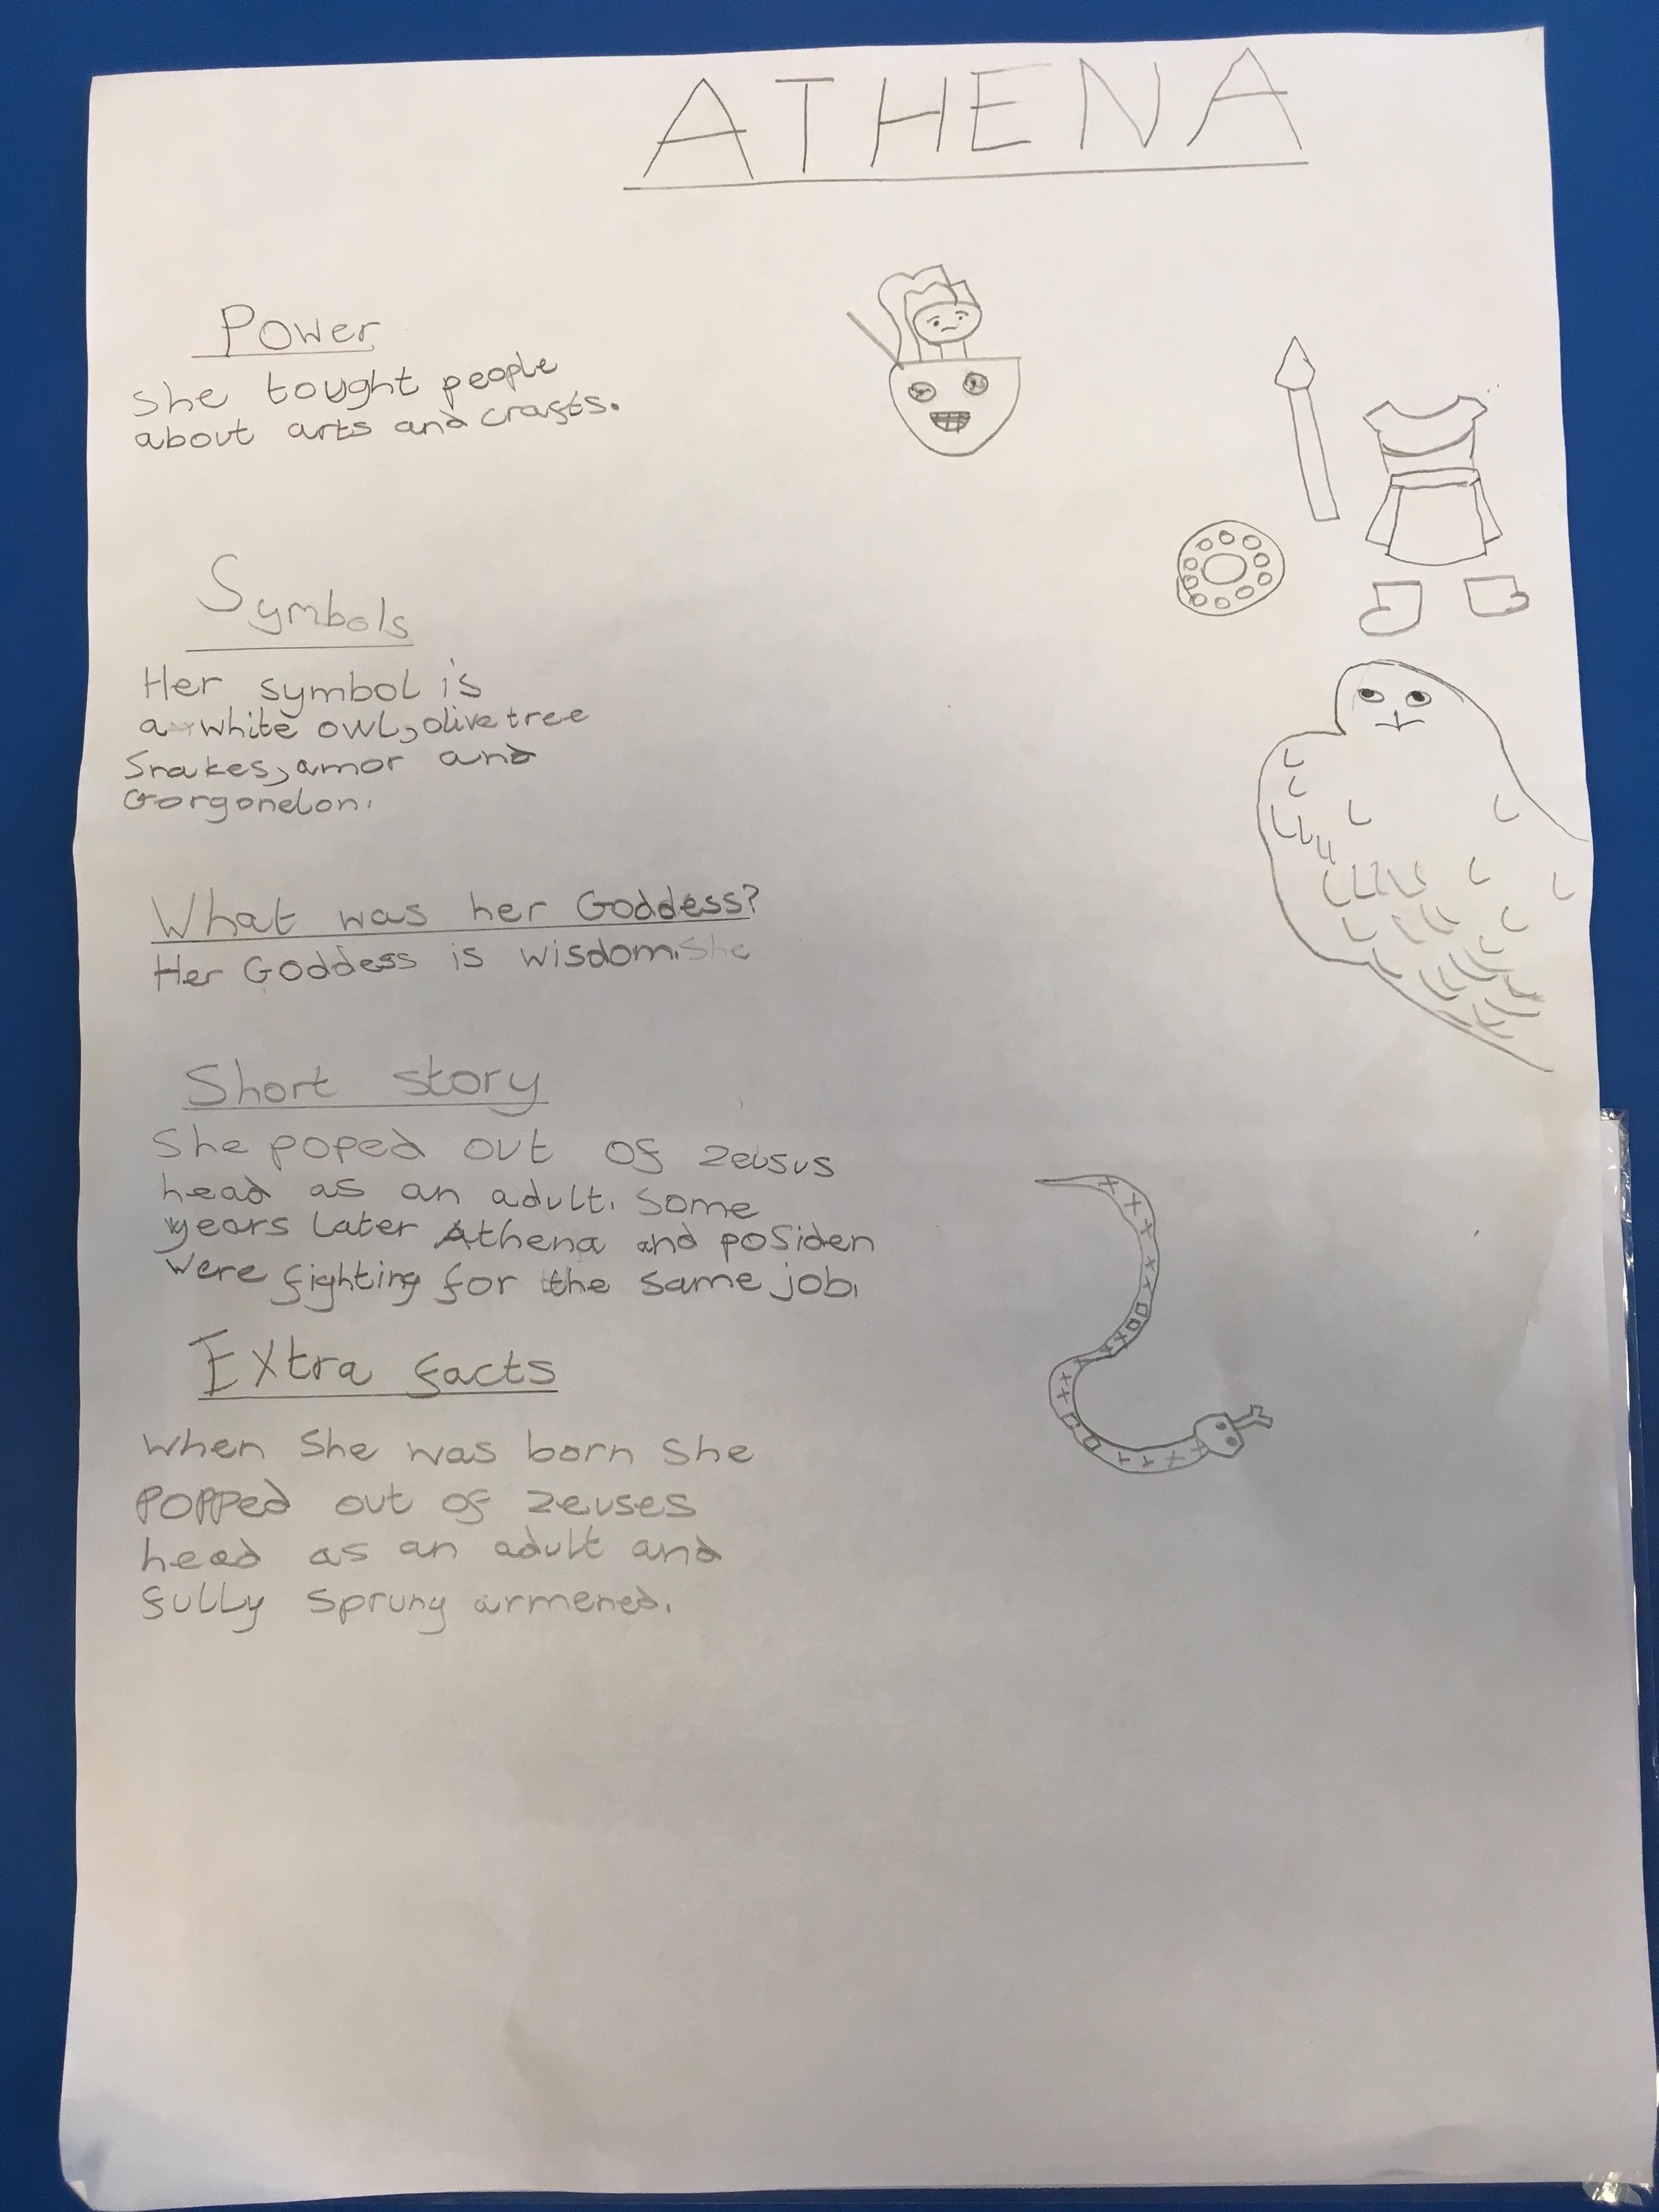 ATHENA
Power
She tought people
about arts and crafts.
Symbols
Her symbol is
a white owl, olive tree
Snakes, amor and
Gorgoneion.
What was her Goddess?
Her Goddess is wisdom. She
Short story
She poped out of zeusus
head as an adult. Some
years later Athena and posiden
were fighting for the same job.
Extra facts
When She was born She
popped out of zeuses
head as an adult and
fully sprung armened.